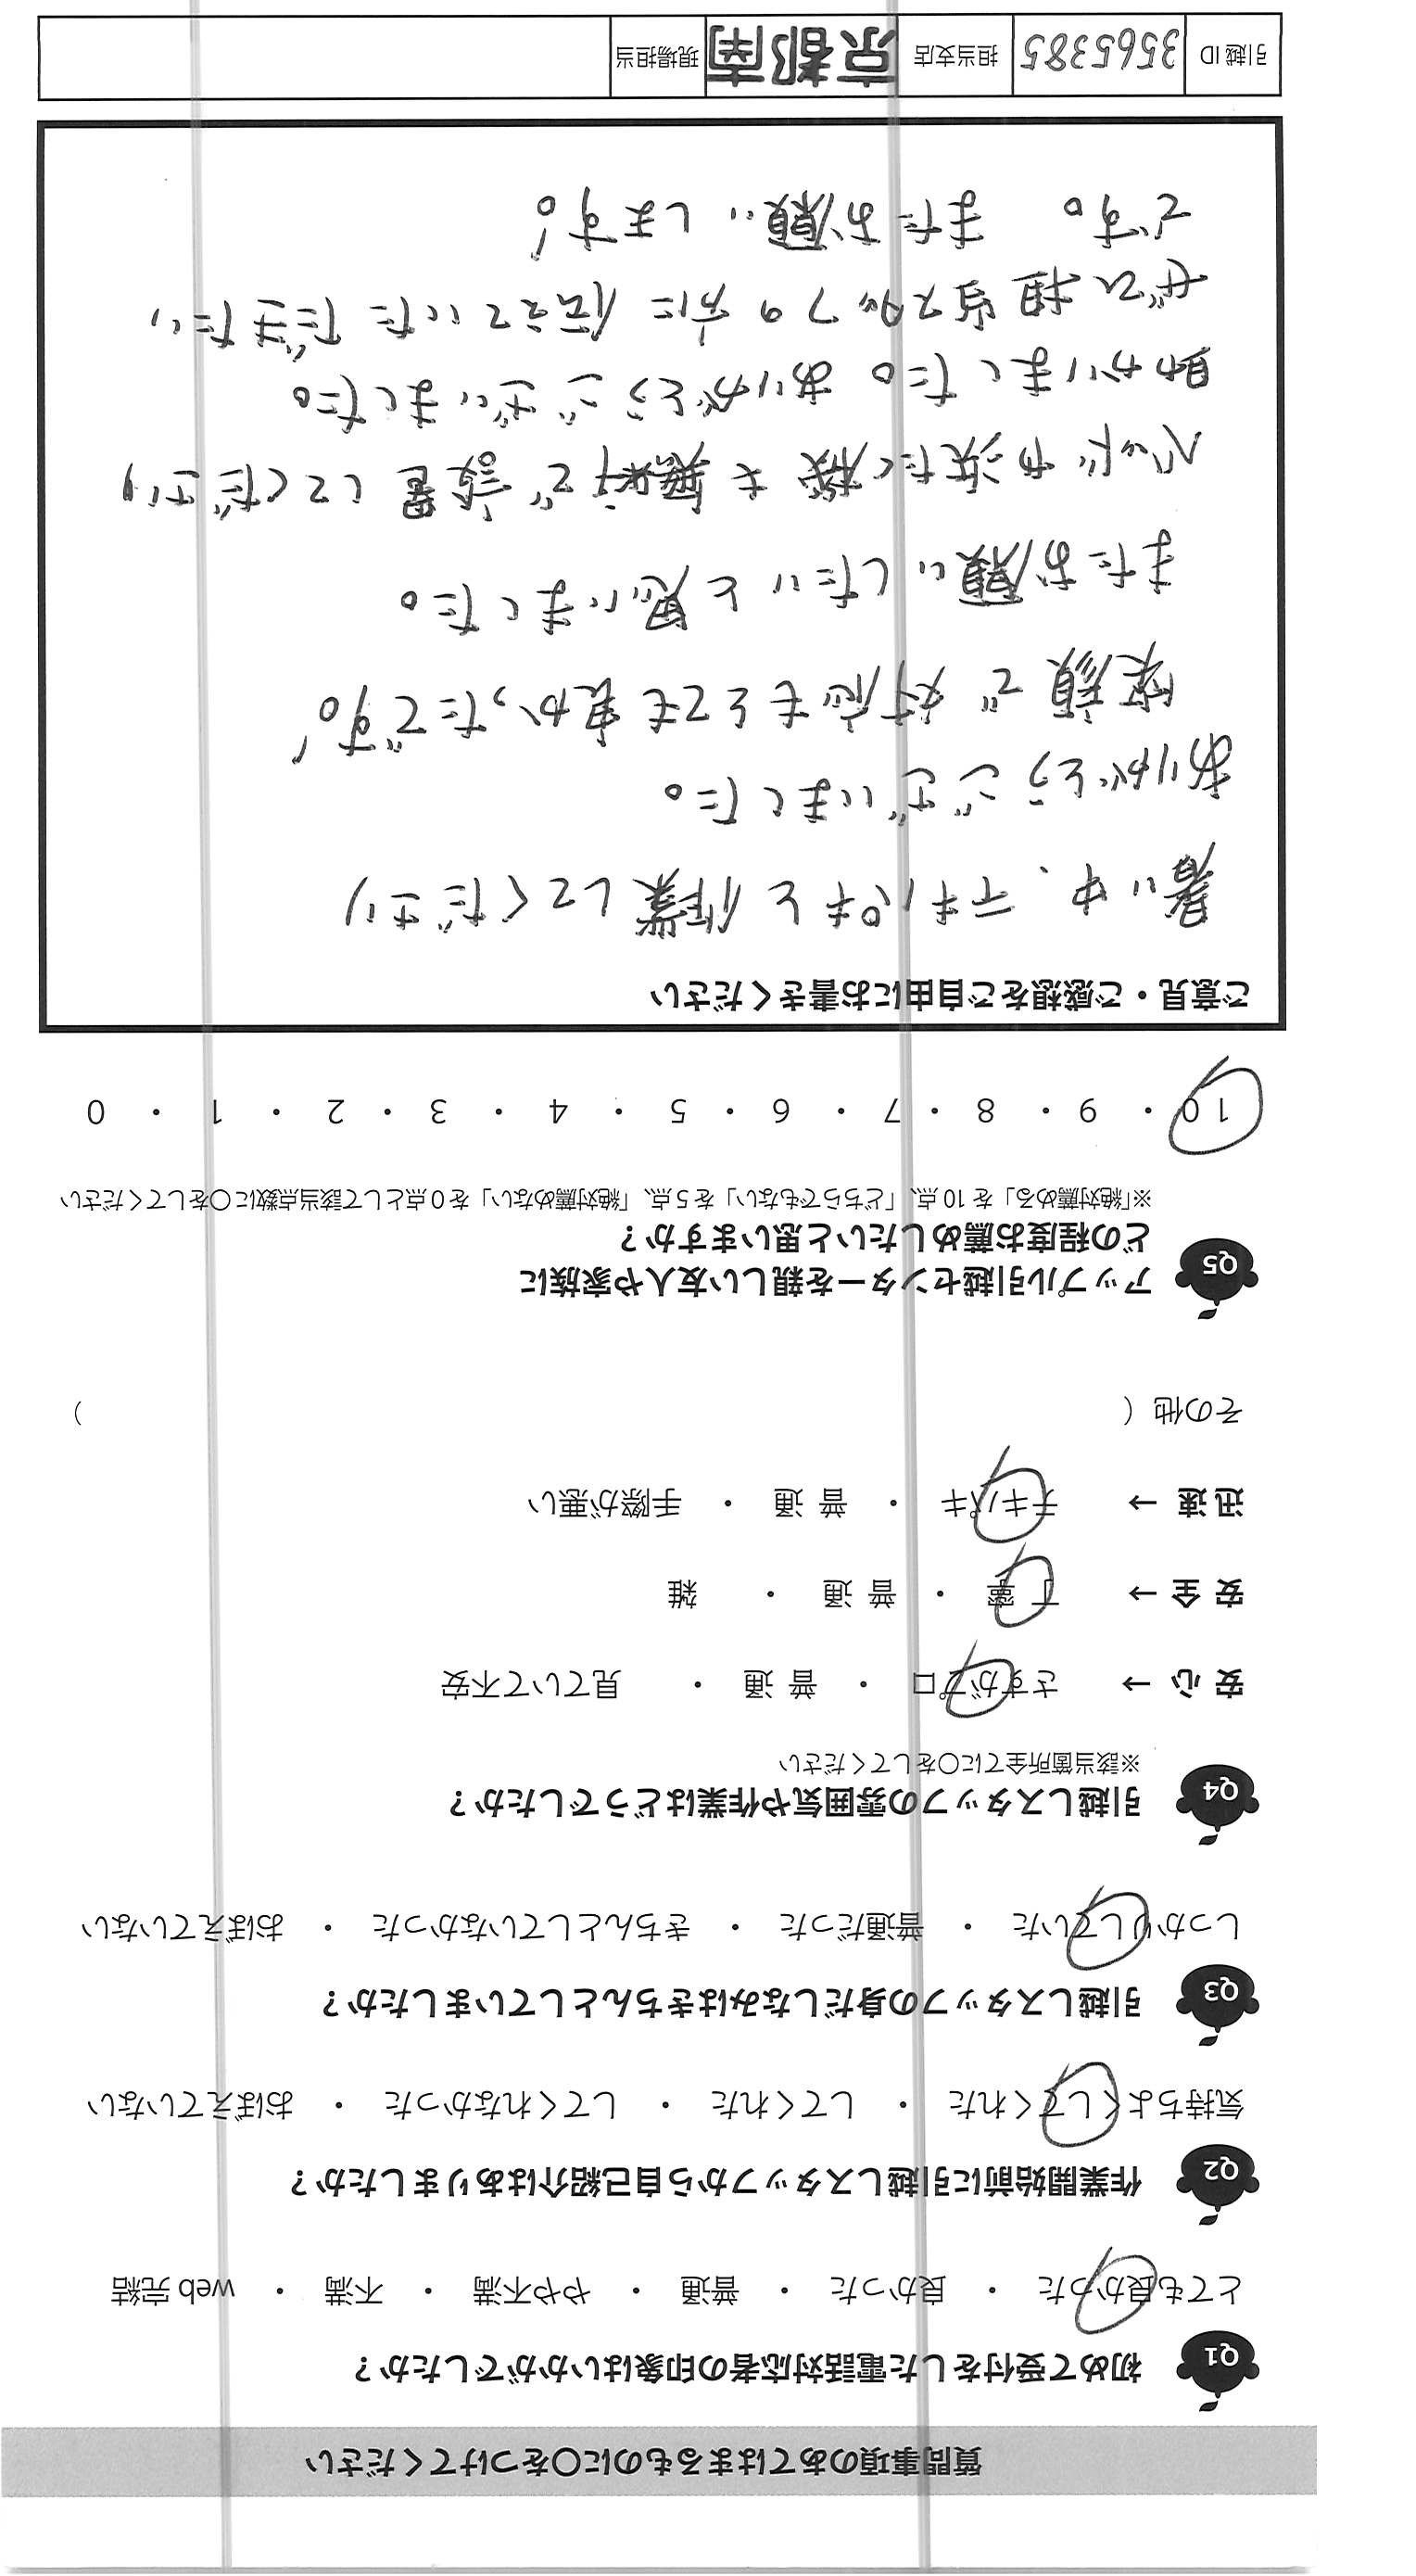 質問事項のあてはまるものに○をつけてください
Q1 初めて受付をした電話対応者の印象はいかがでしたか？
とても良かった ・ 良かった ・ 普通 ・ やや不満 ・ 不満 ・ web 完結
Q2 作業開始前に引越しスタッフから自己紹介はありましたか？
気持ちよくしてくれた ・ してくれた ・ してくれなかった ・ おぼえていない
Q3 引越しスタッフの身だしなみはきちんとしていましたか？
しっかりしていた ・ 普通だった ・ きちんとしていなかった ・ おぼえていない
Q4 引越しスタッフの雰囲気や作業はどうでしたか？
※該当箇所全てに○をしてください
安 心 → さすがプロ ・ 普 通 ・ 見ていて不安
安 全 → 丁 寧 ・ 普 通 ・ 雑
迅 速 → テキパキ ・ 普 通 ・ 手際が悪い
その他（ ）
Q5 アップル引越センターを親しい友人や家族に
どの程度お薦めしたいと思いますか？
※「絶対薦める」を 10 点、「どちらでもない」を 5 点、「絶対薦めない」を 0 点として該当点数に○をしてください
10 ・ 9 ・ 8 ・ 7 ・ 6 ・ 5 ・ 4 ・ 3 ・ 2 ・ 1 ・ 0
ご意見・ご感想をご自由にお書きください
暑い中、テキパキと作業してくださり
ありがとうございました。
笑顔で対応もとても良かったです!
またお願いしたいと思いました。
ベッドや洗たく機も無料で設置してくださり
助かりました。ありがとうございました。
ぜひ担当スタッフの方に伝えていただきたい
です。 またお願いします!
引越 ID 3565385 担当支店 京都南 現場担当